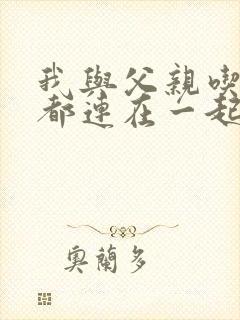 我與父親喫
都連在一起
奧蘭多